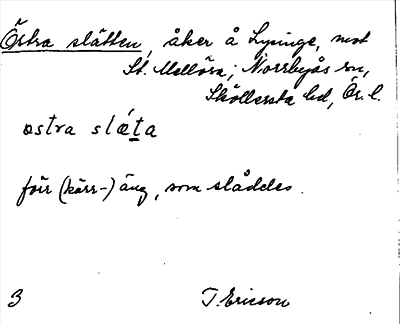 Östra slätten, åker å Lysinge, mot
St. Mellösa; Norrbyås sn,
Sköllersta hd, Ör. l.
ɷstra slǽta
förr (kärr-) äng, som slåddes.
3 T. Ericson